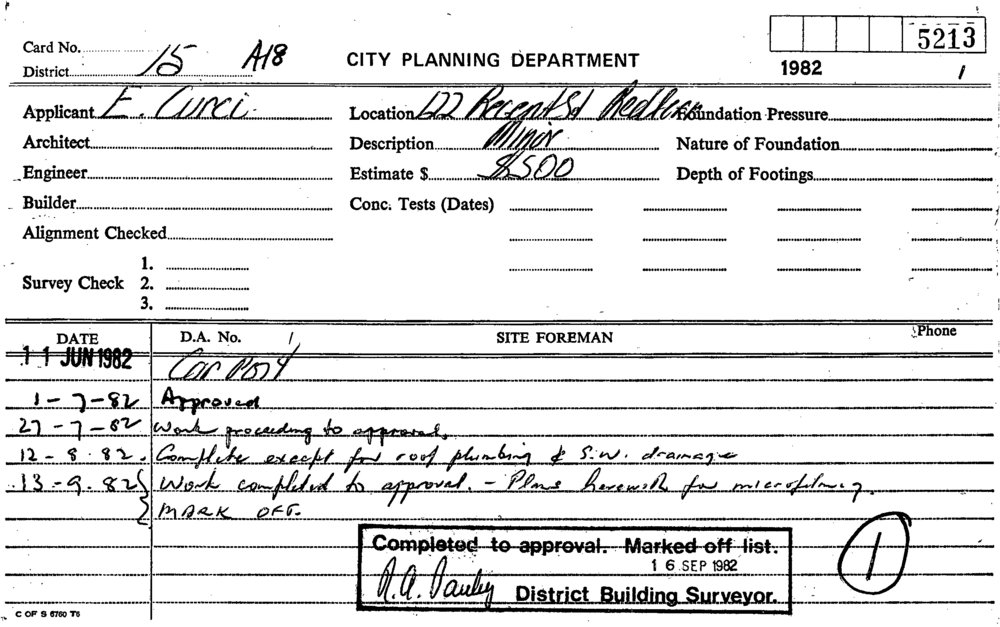 5213
Card No.
District 15 A18 CITY PLANNING DEPARTMENT 1982 1
Applicant E. Curci Location 122 Regent St Redfern Foundation Pressure
Architect Description Minor Nature of Foundation
Engineer Estimate $ $500 Depth of Footings
Builder Conc. Tests (Dates)
Alignment Checked
Survey Check 1.
2.
3.
DATE D.A. No. / SITE FOREMAN Phone
11 JUN 1982 Car Port
1-7-82 Approved
27-7-82 Work proceeding to approval.
12-8-82. Complete except for roof plumbing & S.W. drainage
13-9-82 Work completed to approval. - Plans herewith for microfilming.
MARK OFF.
Completed to approval. Marked off list.
16 SEP 1982
District Building Surveyor.
1
C OF S 6760 T5